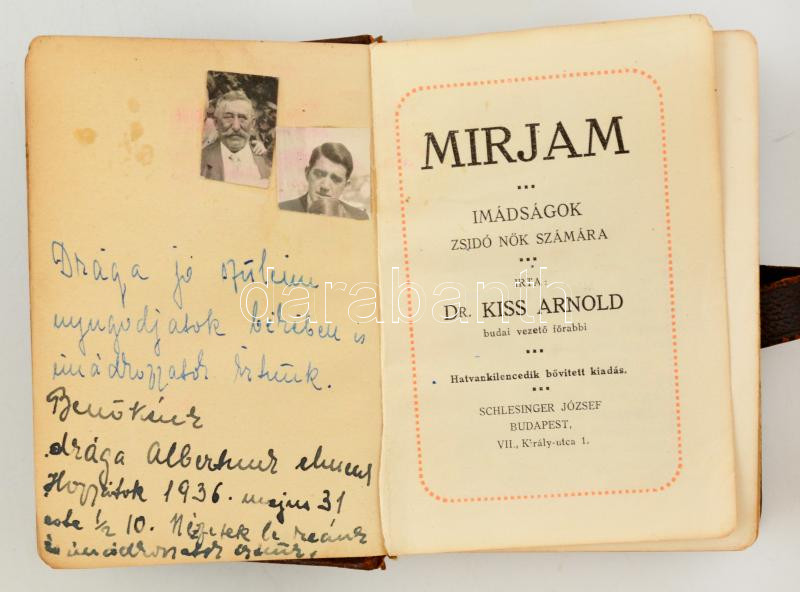 Drága jó szüleim
nyugodjatok békében is
imádkozzatok értünk.
Benőkénk
drága Albertunk elment
Hozzátok 1936. május 31
este ½ 10. Nézzetek le reánk
és imádkozzatok értünk.
MIRJAM
IMÁDSÁGOK
ZSIDÓ NŐK SZÁMÁRA
IRTA:
DR. KISS ARNOLD
budai vezető főrabbi
Hatvankilencedik bővített kiadás.
SCHLESINGER JÓZSEF
BUDAPEST,
VII., Király-utca 1.
darabanth